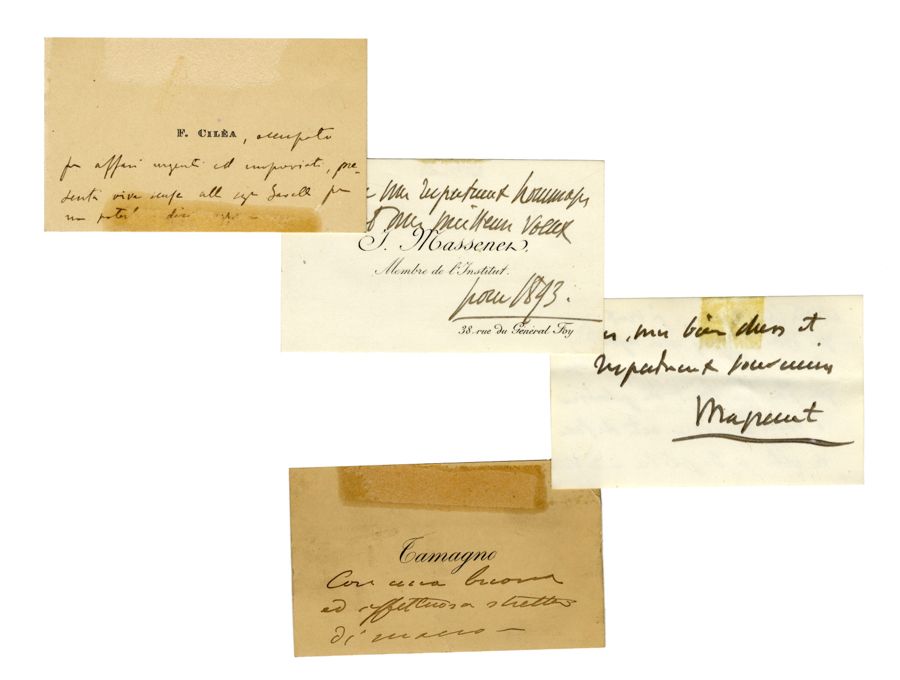 F. CILÈA, occupato
per affari urgenti ed improvvisi, pre-
senta vive scuse alla sigra
respectueux hommages
et mes meilleurs voeux
J. Massenet.
Membre de l'Institut.
pour 1893.
38. rue du Général Foy
mes bien chers et
respectueux souvenirs
Massenet
Tamagno
Con una buona
ed affettuosa stretta
di mano —